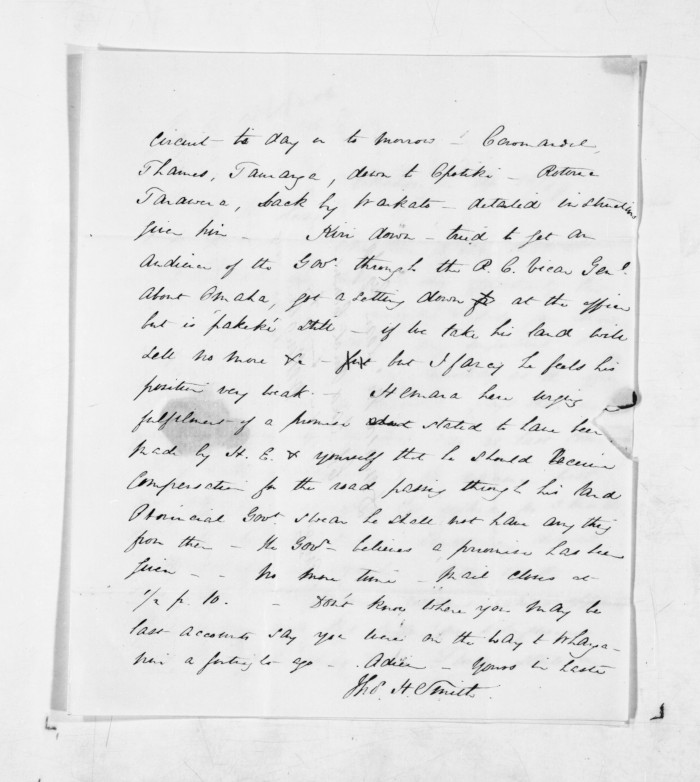 circuit to day or to morrow – Coromandel,
Thames, Tauranga, down to Opotiki – Rotorua
Tarawera, back by Waikato – detailed instructions
given him – Hori down – tried to get an
audience of the Govr. through the R. C. Vicar Genl.
about Omaha, got a setting down at the office
but is 'pakeke' still – if we take his land will
sell no more &c – but I fancy he feels his
position very weak. – Hemara here urging
fulfilment of a promise stated to have been
made by H. E. & yourself that he should receive
compensation for the road passing through his land
Provincial Govt. swear he shall not have anything
from them – the Govr – believes a promise has been
given – – No more time – Mail closes at
½ p. 10. – Don't know where you may be
last accounts say you were on the way to Whanga-
nui a fortnight ago – Adieu – Yours in haste
Jho. H. Smith